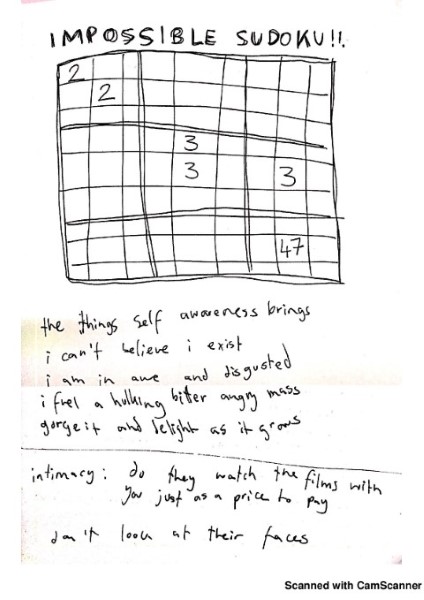 IMPOSSIBLE SUDOKU!!
2
2
3
3 3
47
the things self awareness brings
i can't believe i exist
i am in awe and disgusted
i feel a hulking bitter angry mass
gorge it and delight as it grows
intimacy: do they watch the films with
you just as a price to pay
don't look at their faces
Scanned with CamScanner